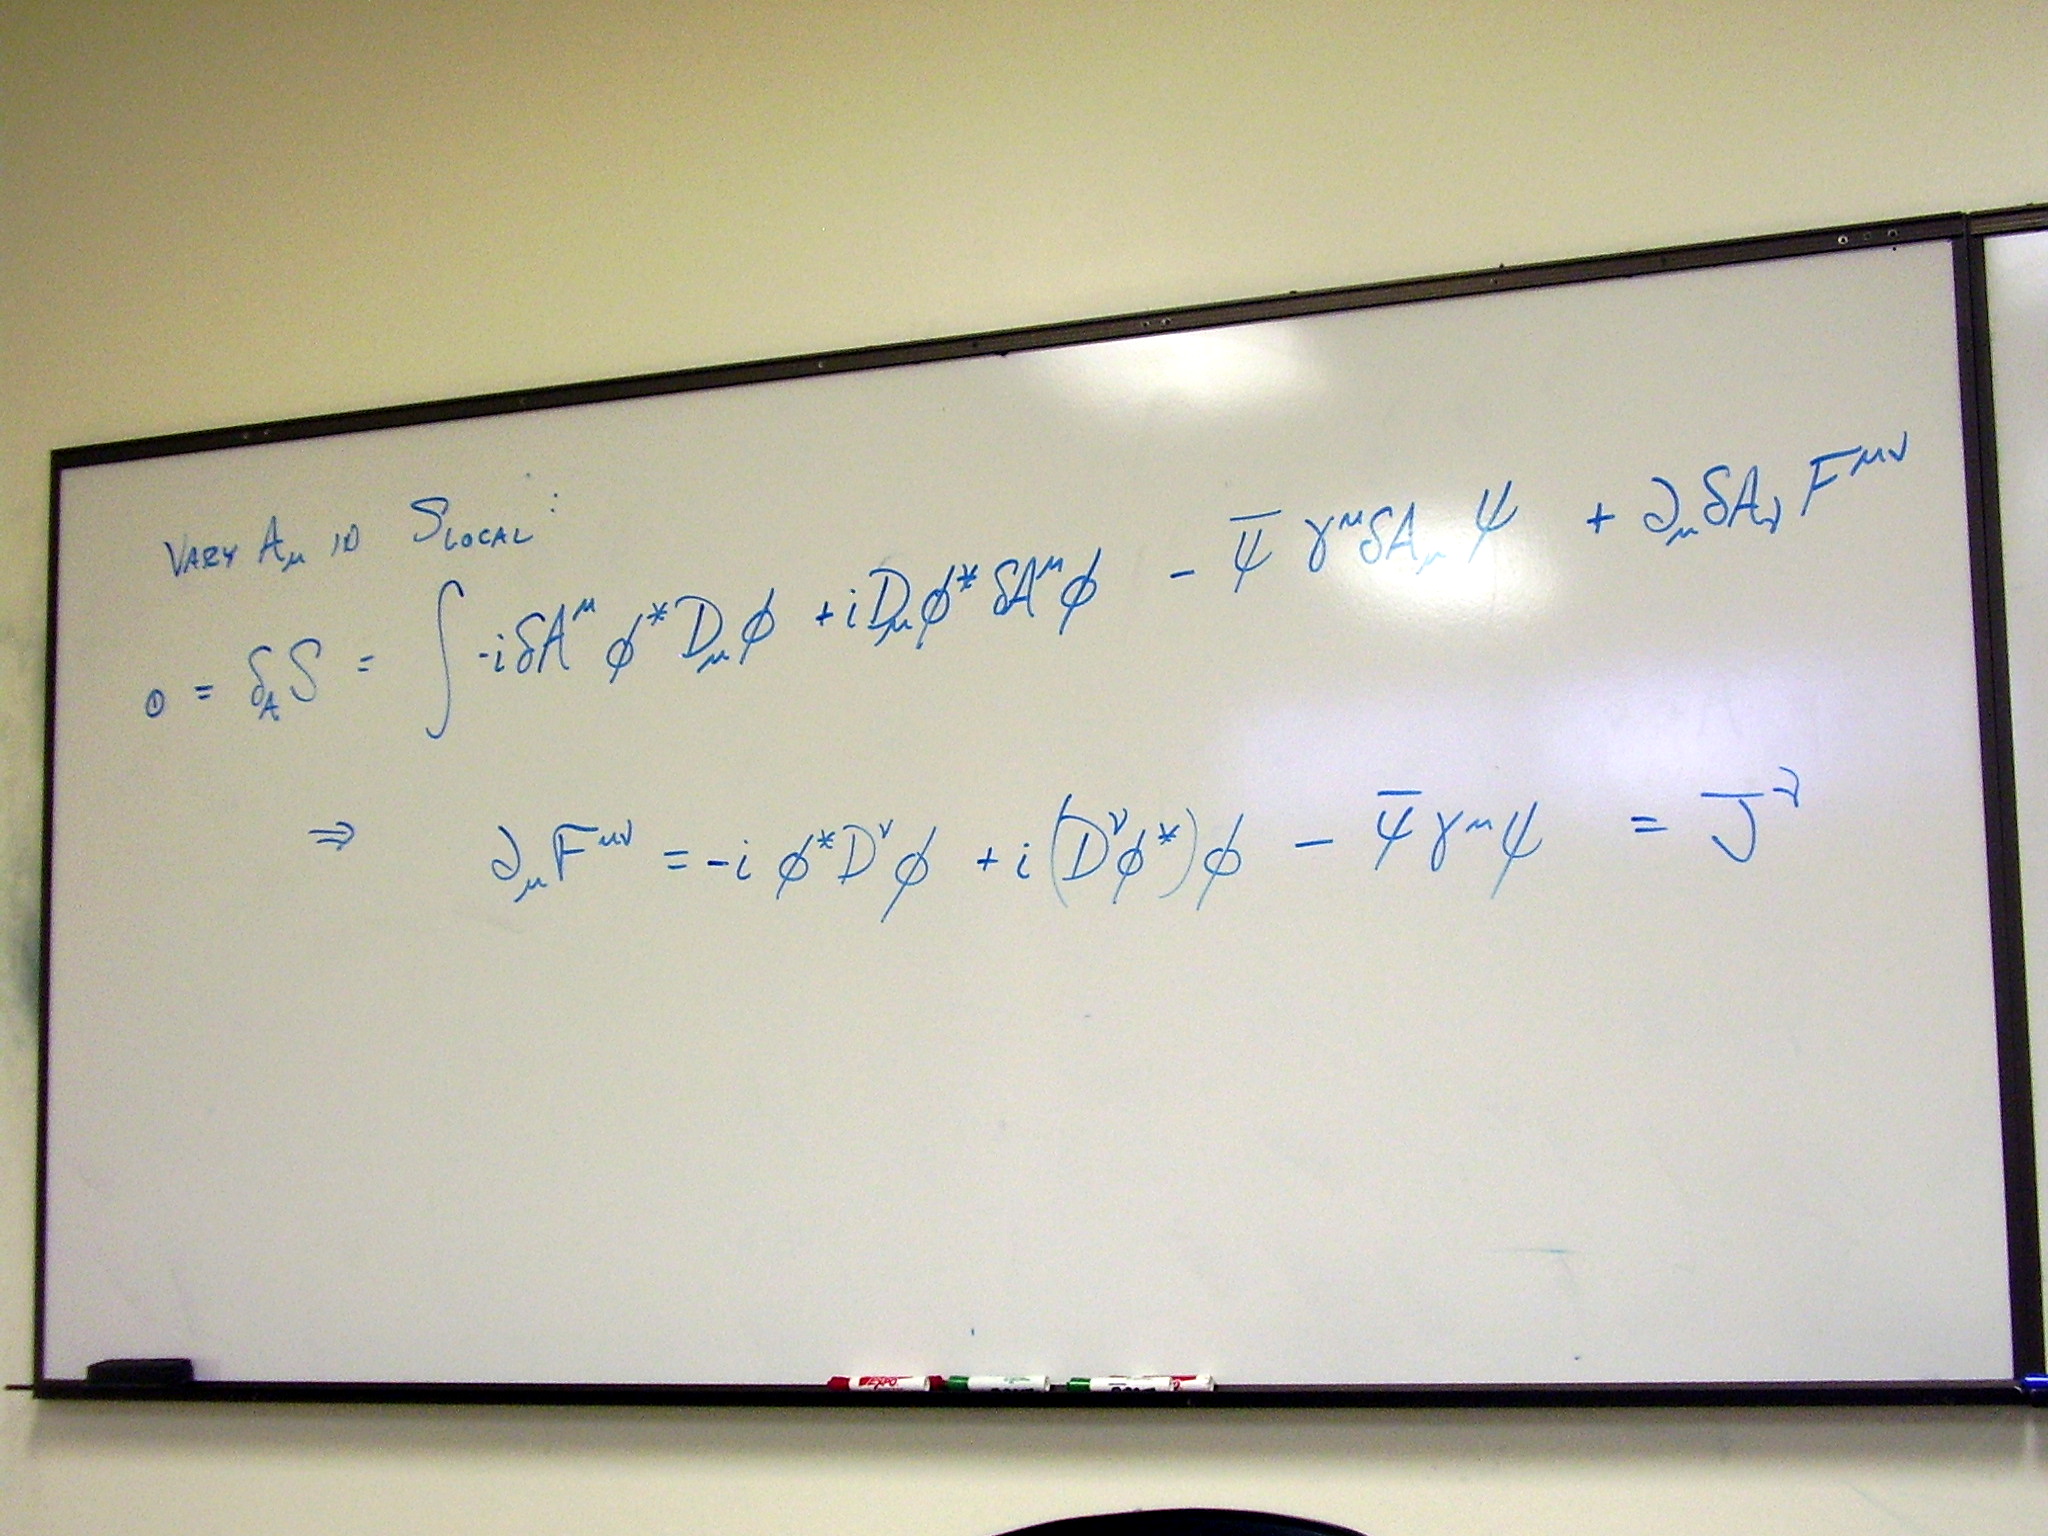 VARY A_μ IN S_LOCAL:
0 = δ_A S = ∫ -i δA^μ φ* D_μ φ + i D_μ φ* δA^μ φ - ψ̄ γ^μ δA_μ ψ + ∂_μ δA_ν F^{μν}
⇒ ∂_μ F^{μν} = -i φ* D^ν φ + i (D^ν φ*) φ - ψ̄ γ^μ ψ = J^ν
EXPO